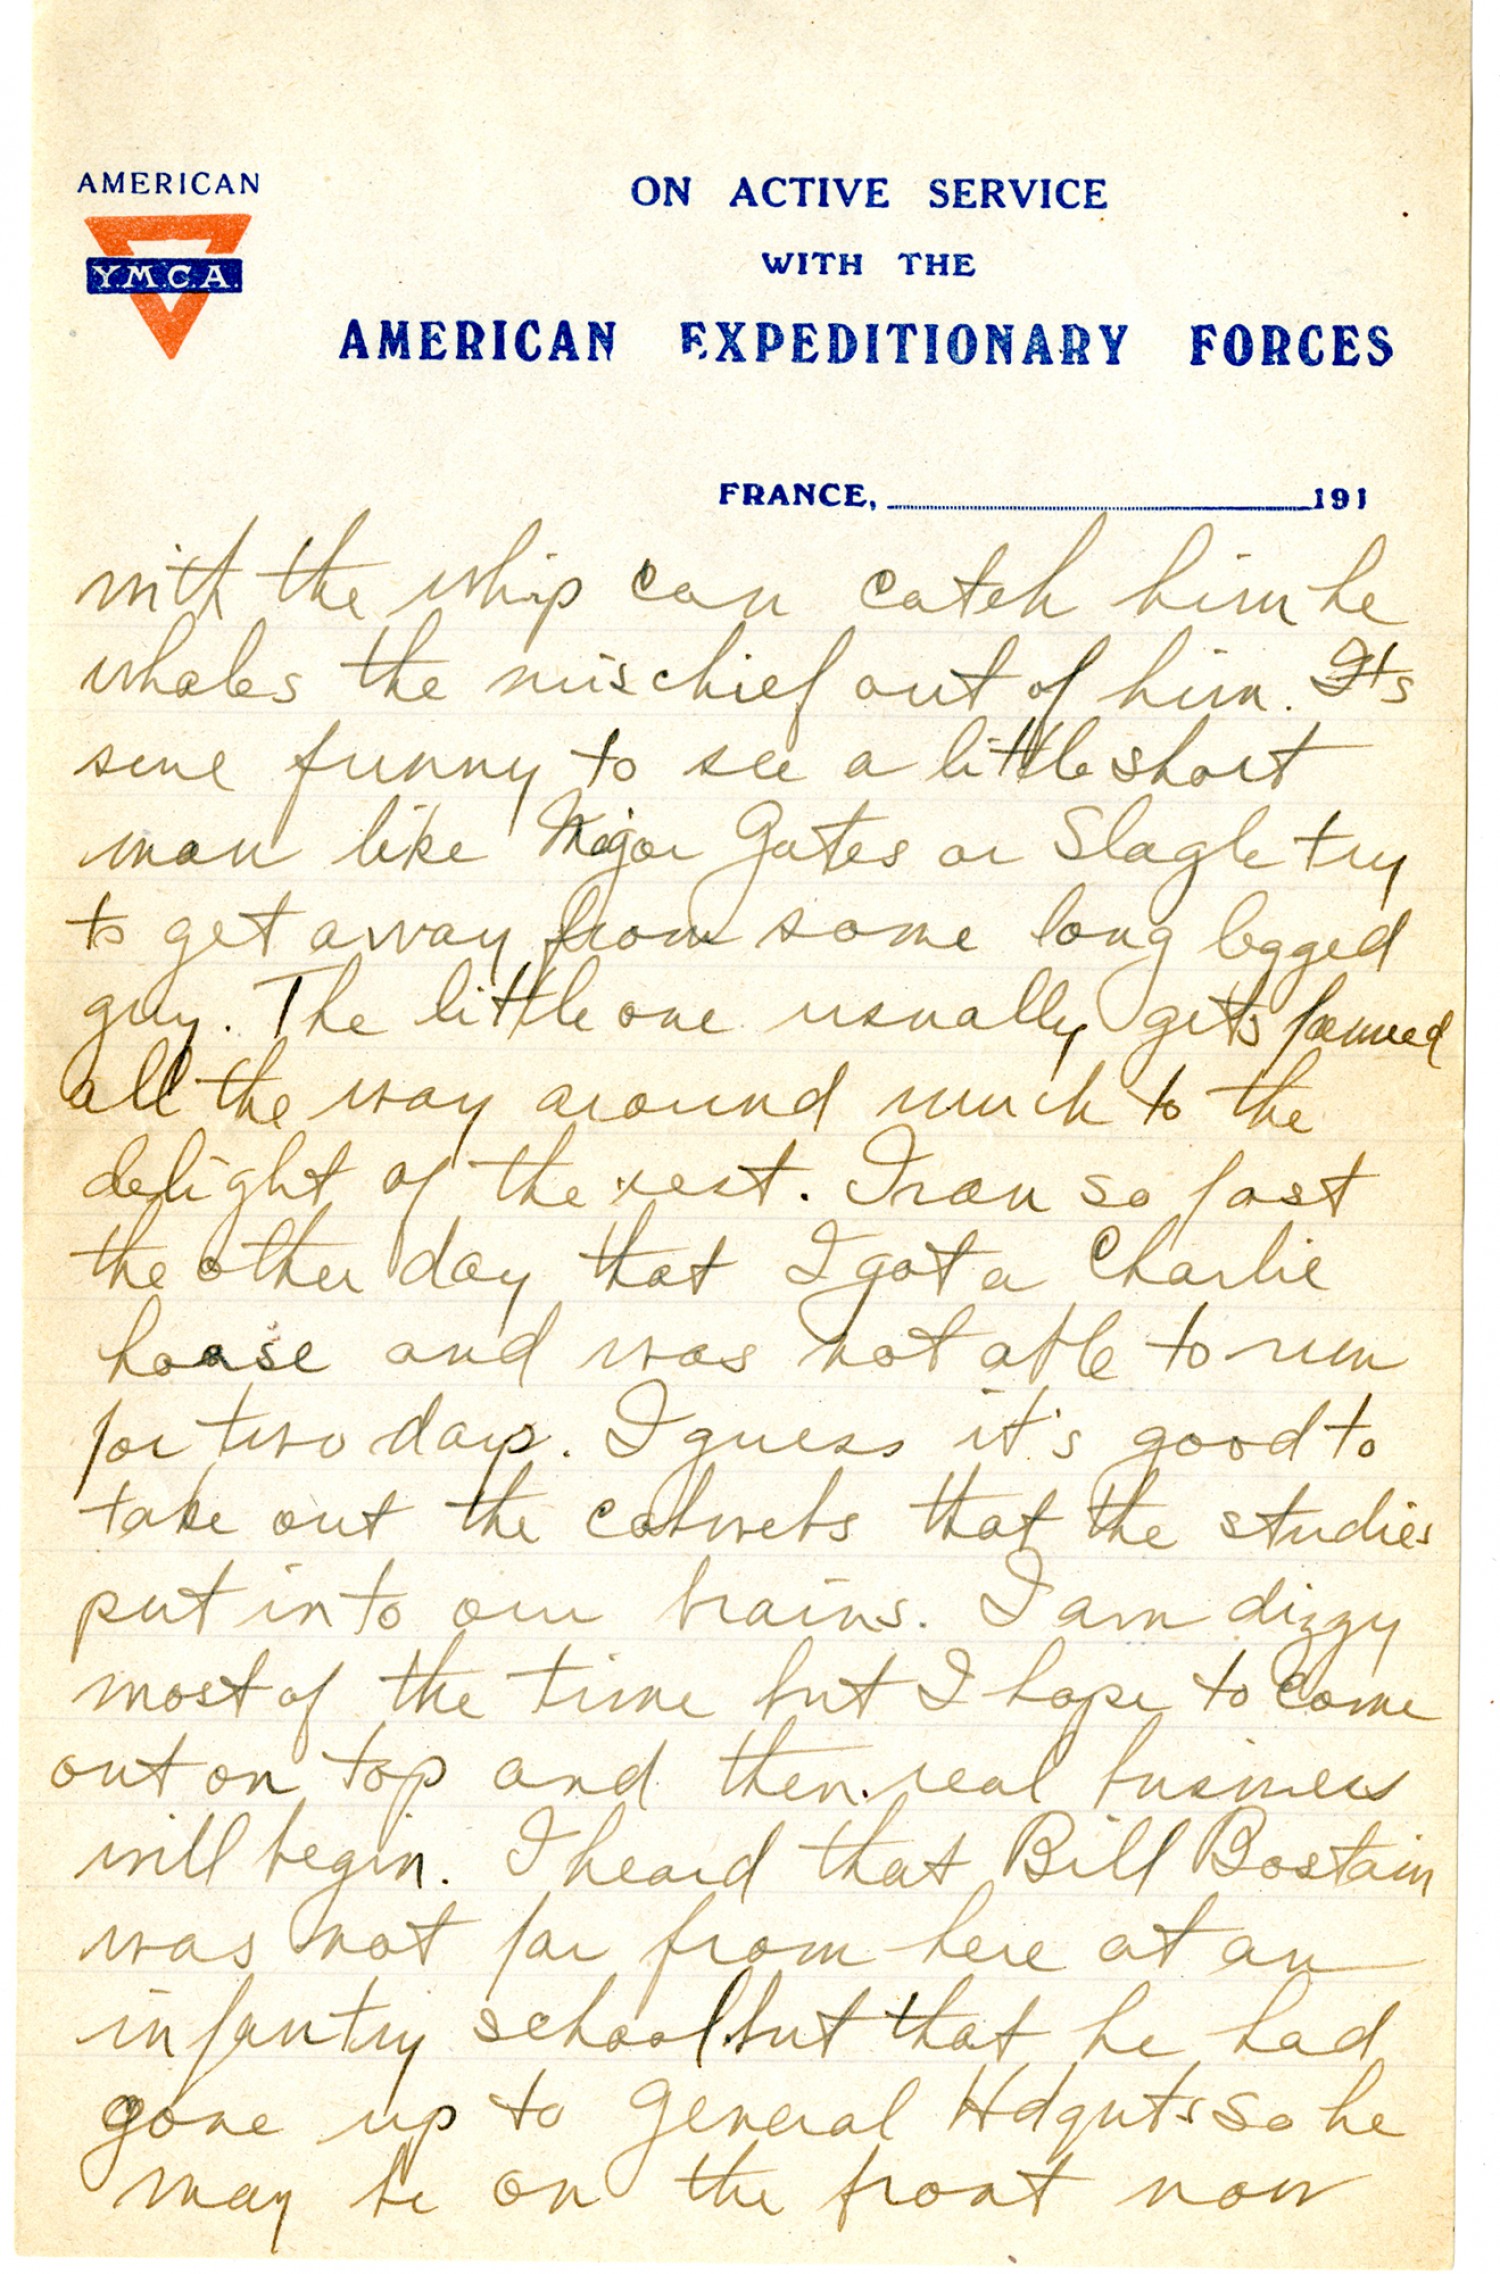 AMERICAN
YMCA
ON ACTIVE SERVICE
WITH THE
AMERICAN EXPEDITIONARY FORCES
FRANCE, 191
with the whip can catch him he
whales the mischief out of him. It's
sure funny to see a little short
man like Major Gates or Slagle try
to get away from some long legged
guy. The little one usually gets fanned
all the way around much to the
delight of the rest. I ran so fast
the other day that I got a Charlie
hoase and was not able to run
for two days. I guess it's good to
take out the cobwebs that the studies
put into our brains. I am dizzy
most of the time but I hope to come
out on top and then real business
will begin. I heard that Bill Bostain
was not far from here at an
infantry school but that he had
gone up to General Hdquts so he
may be on the front now